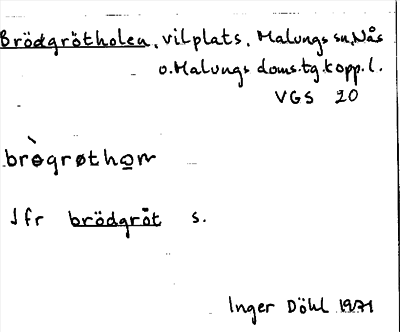 Brödgrötholen, vilplats, Malungs sn, Nås
o. Malungs doms.tg. kopp. l.
VGS 20
brògrøthom
Jfr brödgröt s.
Inger Döhl 1971